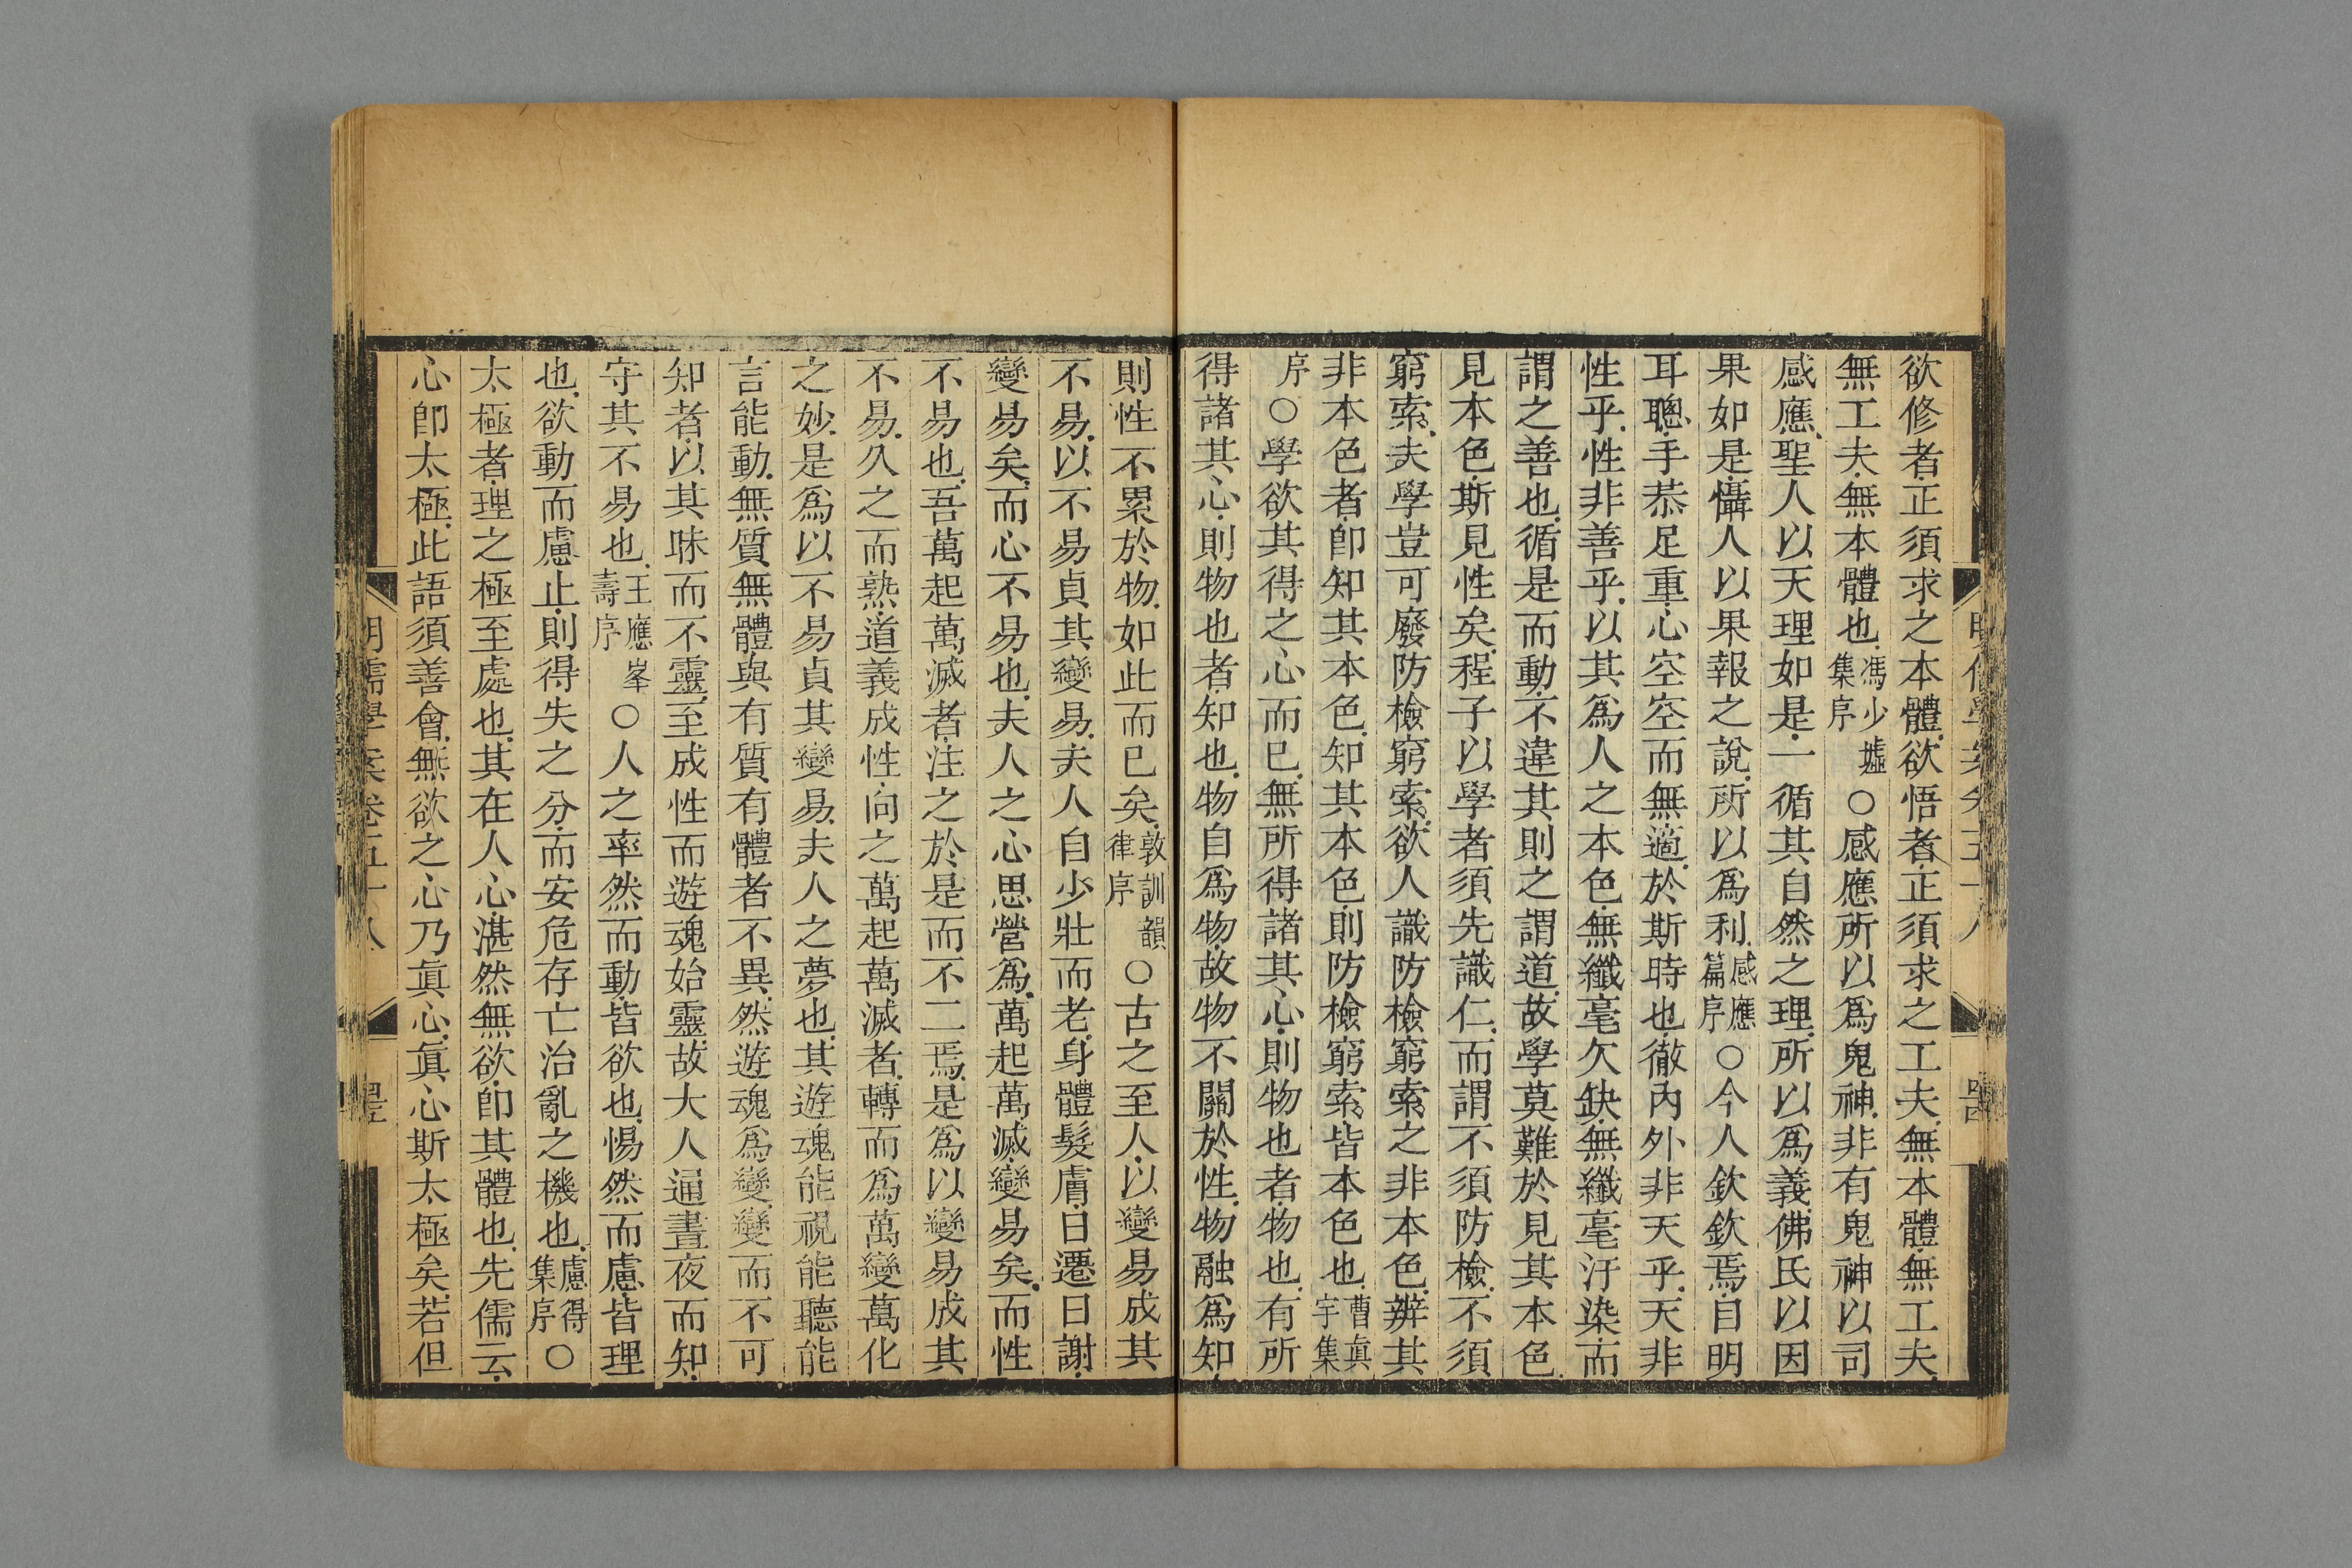 欲修者.正須求之本體.欲悟者.正須求之工夫.無本體.無工夫.
無工夫.無本體也.馮少墟集序○感應所以爲鬼神.非有鬼神以司
感應.聖人以天理如是.一循其自然之理.所以爲義.佛氏以因
果如是.懾人以果報之說.所以爲利.感應篇序○今人欽欽焉.目明
耳聰.手恭足重.心空空而無適.於斯時也.徹內外非天乎.天非
性乎.性非善乎.以其爲人之本色.無纖毫欠缺.無纖毫汙染.而
謂之善也.循是而動.不違其則之謂道.故學莫難於見其本色.
見本色.斯見性矣.程子以學者須先識仁.而謂不須防檢.不須
窮索.夫學豈可廢防檢窮索.欲人識防檢窮索之非本色.辨其
非本色者.卽知其本色.知其本色.則防檢窮索.皆本色也.曹眞宇集
序○學欲其得之心而已.無所得諸其心.則物也者.物也.有所
得諸其心.則物也者.知也.物自爲物.故物不關於性.物融爲知.
則性不累於物.如此而已矣.敦訓韻律序○古之至人.以變易成其
不易.以不易貞其變易.夫人自少壯而老.身體髮膚.日遷日謝.
變易矣.而心不易也.夫人之心思營爲.萬起萬滅.變易矣.而性
不易也.吾萬起萬滅者.注之於是而不二焉.是爲以變易成其
不易.久之而熟.道義成性.向之萬起萬滅者.轉而爲萬變萬化
之妙.是爲以不易貞其變易.夫人之夢也.其遊魂能視能聽能
言能動.無質無體.與有質有體者不異.然遊魂爲變.變而不可
知者.以其昧而不靈.至成性而遊魂始靈.故大人通晝夜而知.
守其不易也.王應峯壽序○人之率然而動.皆欲也.惕然而慮.皆理
也.欲動而慮止.則得失之分.而安危存亡治亂之機也.慮得集序○
太極者.理之極至處也.其在人心.湛然無欲.卽其體也.先儒云.
心卽太極.此語須善會.無欲之心.乃眞心.眞心斯太極矣.若但
明儒學案卷五十八